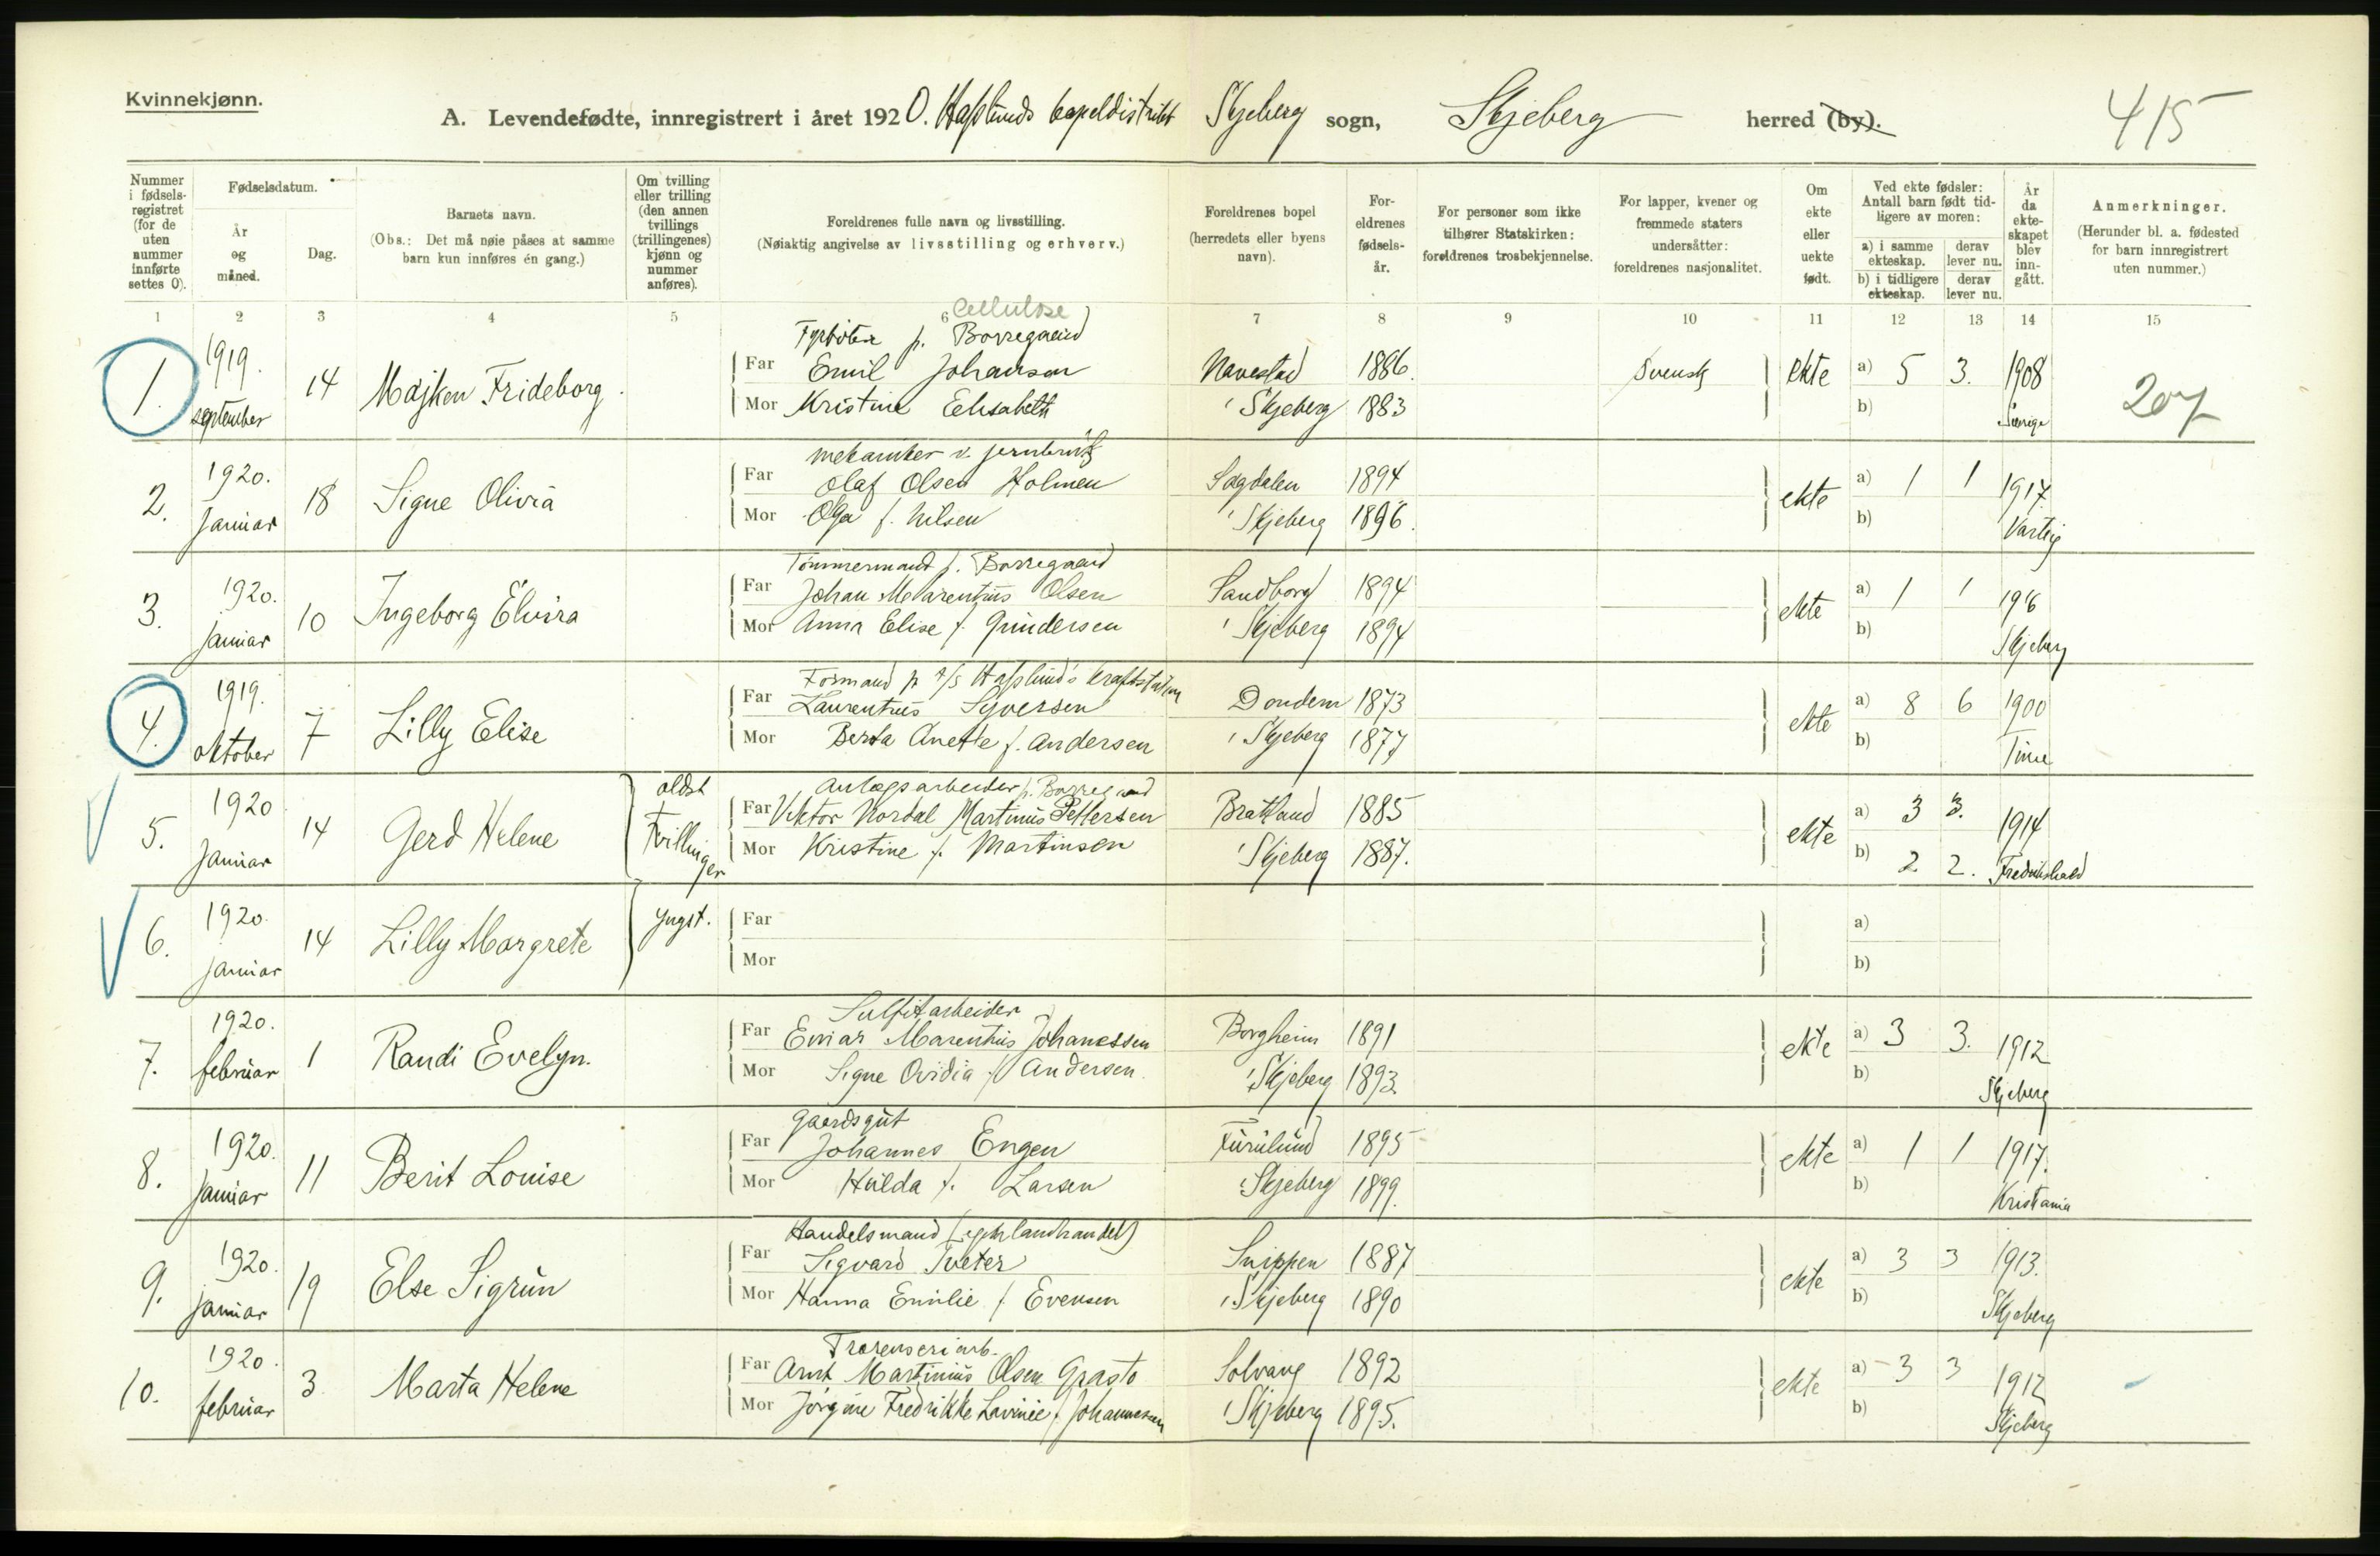 Kvinnekjønn.
A. Levendefødte, innregistrert i året 1920. Hafslunds kapeldistrikt Skjeberg sogn, Skjeberg herred (by). 415
Nummer i fødsels-registret (for de uten nummer innførte settes 0).
Fødselsdatum.
År og måned.
Dag.
Barnets navn.
(Obs.: Det må nøie påses at samme barn kun innføres én gang.)
Om tvilling eller trilling (den annen tvillings (trillingenes) kjønn og nummer anføres).
Foreldrenes fulle navn og livsstilling.
(Nøiaktig angivelse av livsstilling og erhverv.)
Foreldrenes bopel (herredets eller byens navn).
For-eldrenes fødsels-år.
For personer som ikke tilhører Statskirken: foreldrenes trosbekjennelse.
For lapper, kvener og fremmede staters undersåtter: foreldrenes nasjonalitet.
Om ekte eller uekte født.
Ved ekte fødsler: Antall barn født tid-ligere av moren:
a) i samme ekteskap. derav lever nu.
b) i tidligere ekteskap. derav lever nu.
År da ekte-skapet blev inn-gått.
Anmerkninger.
(Herunder bl. a. fødested for barn innregistrert uten nummer.)
1 2 3 4 5 6 7 8 9 10 11 12 13 14 15
Cellulose
Fyrbøter p. Borregaard
1. 1919. september 14 Majken Frideborg
Far Emil Johanson Navestad 1886. Svensk ekte a) 5 3. 1908
Mor Kristine Elisabeth Skjeberg 1883 b) Sverige
207
mekaniker v. jernbruk
2. 1920. Januar 18 Signe Olivia
Far Olaf Olsen Holmen Sagdalen 1894 ekte a) 1 1 1917.
Mor Olga f. Nilsen Skjeberg 1896. b) Varteig
Tømmermand p. Borregaard
3. 1920. januar 10 Ingeborg Elvira
Far Johan Marentius Olsen Sandborg 1894 ekte a) 1 1 1916
Mor Anna Elise f. Gundersen Skjeberg 1894 b) Skjeberg
Formand p A/S Hafslunds kraftstation
4. 1919. oktober 7 Lilly Elise
Far Laurentius Syversen Dondern 1873 ekte a) 8 6 1900
Mor Berta Anette f. Andersen Skjeberg 1877 b) Tune
ældst Anlægsarbeider p. Borregaard
5. 1920 Januar 14 Gerd Helene Tvillinger
Far Viktor Nordal Martinius Pettersen Bratland 1885 ekte a) 3 3. 1914
Mor Kristine f. Martinsen Skjeberg 1887. b) 2 2. Fredrikshald
6. 1920. januar 14 Lilly Margrete yngst.
Far a)
Mor b)
Sulfitarbeider
7. 1920. februar 1 Randi Evelyn.
Far Einar Marentius Johanessen Borgheim 1891 ekte a) 3 3. 1912
Mor Signe Ovidia f. Andersen Skjeberg 1893. b) Skjeberg
Gaardsgut
8. 1920. Januar 11 Berit Louise
Far Johannes Engen Furulund 1895 ekte a) 1 1 1917.
Mor Hulda f. Larsen Skjeberg 1899. b) Kristiania
Handelsmand (egen landhandel)
9. 1920. januar 19 Else Sigrun
Far Sigvard Tveter Snippen 1887 ekte a) 3 3 1913.
Mor Hanna Emilie f. Evensen Skjeberg 1890 b) Skjeberg
Træsenseriarb.
10. 1920. februar 3 Marta Helene
Far Arnt Martinius Olsen Grasto Solvang 1892 ekte a) 3 3 1912
Mor Jørgine Fredrikke Lovinie f. Johannesen Skjeberg 1895. b) Skjeberg